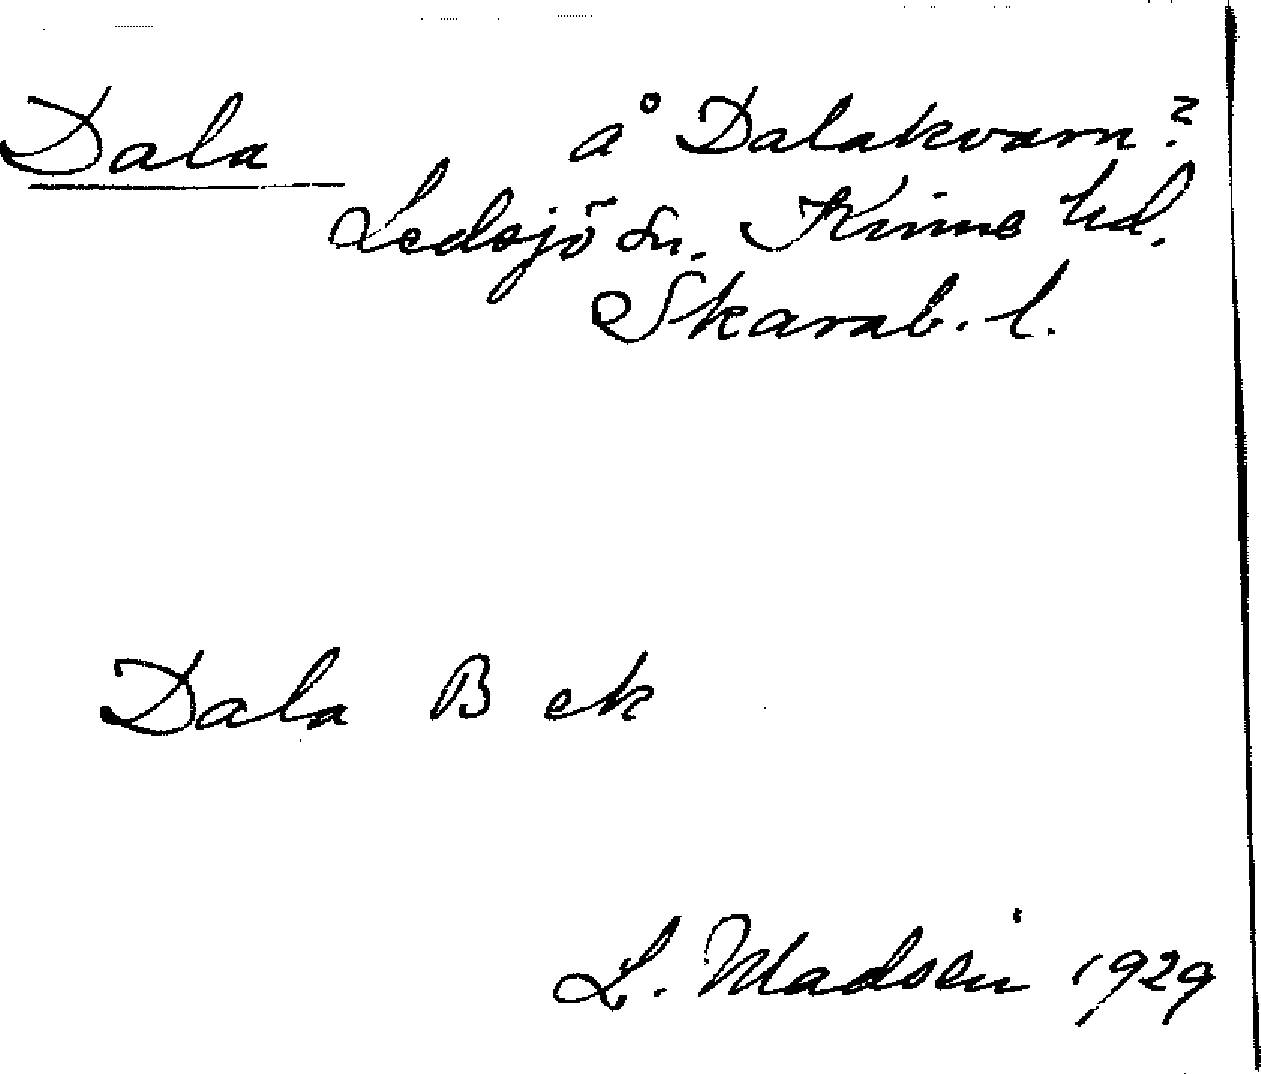 Dala å Dalakvarn?
Ledsjö sn. Kinne hd.
Skarab. l.
Dala B ek
L. Madsen 1929